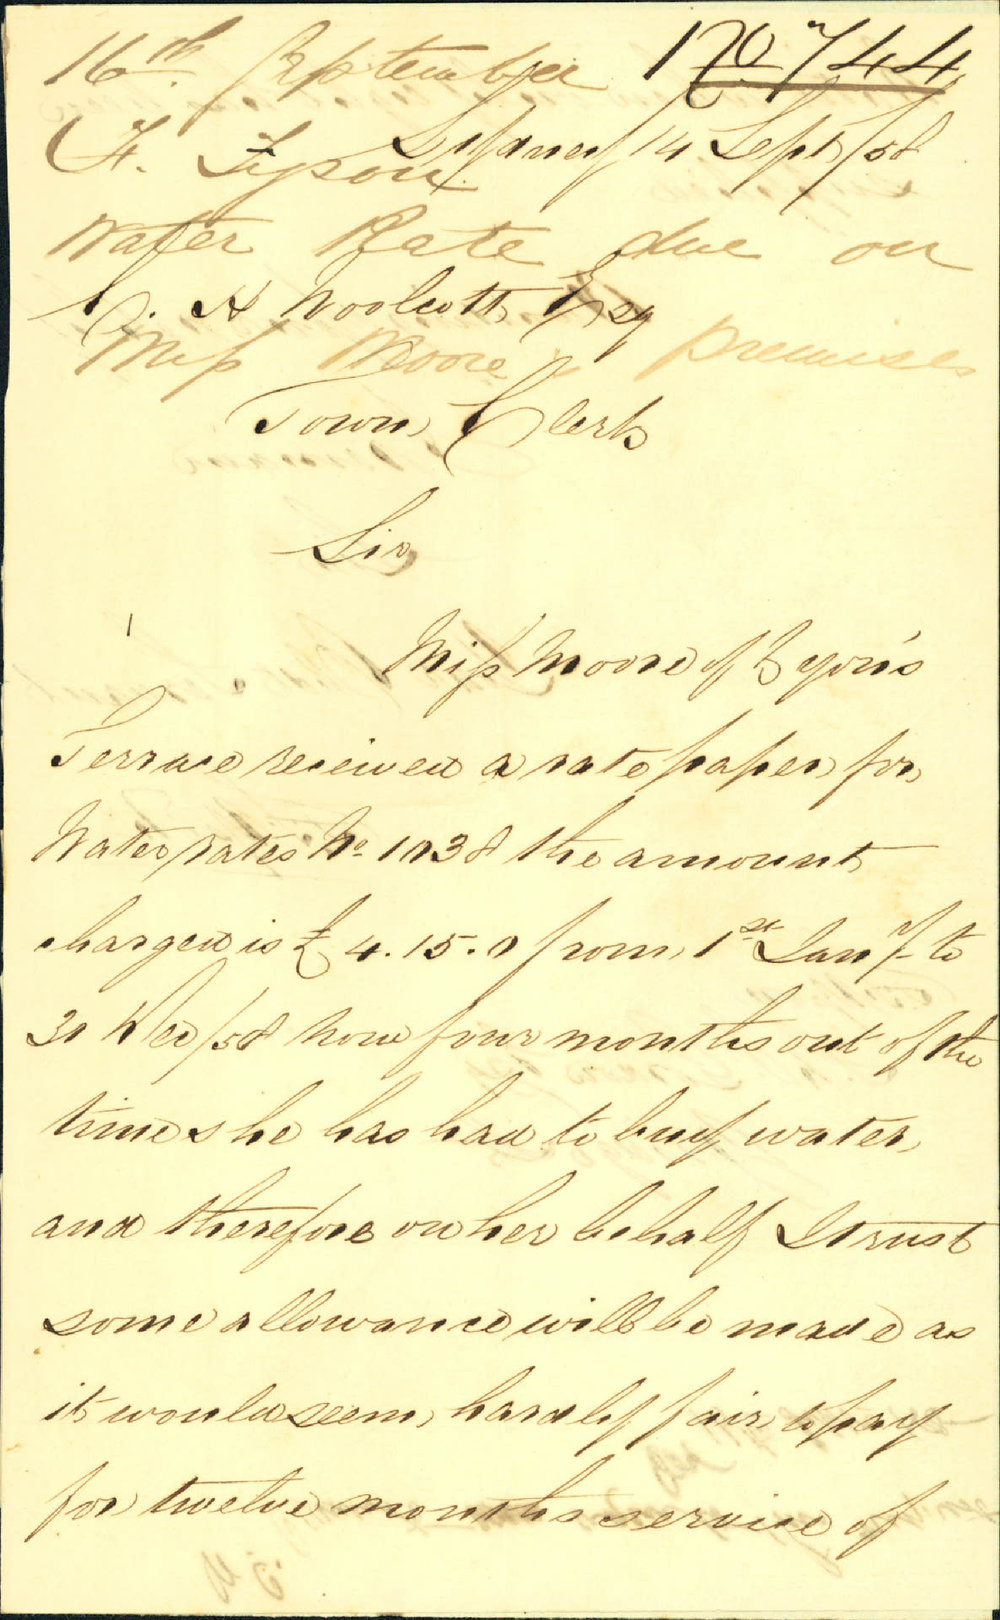 16th September 1858 744
Sydney 14 Sept/58
F. Tyson
Water Rate due on
C. H Woolcott, Esq
Miss Moore's premises
Town Clerk
Sir,
Miss Moore of Lyon's
Terrace received a rate paper for
Water rates No. 1038 the amount
charged is £4.15.0 from 1st Jany to
31 Dec/58 now four months out of the
time she has had to buy water,
and therefore on her behalf I trust
some allowance will be made as
it would seem hardly fair to pay
for twelve months service of